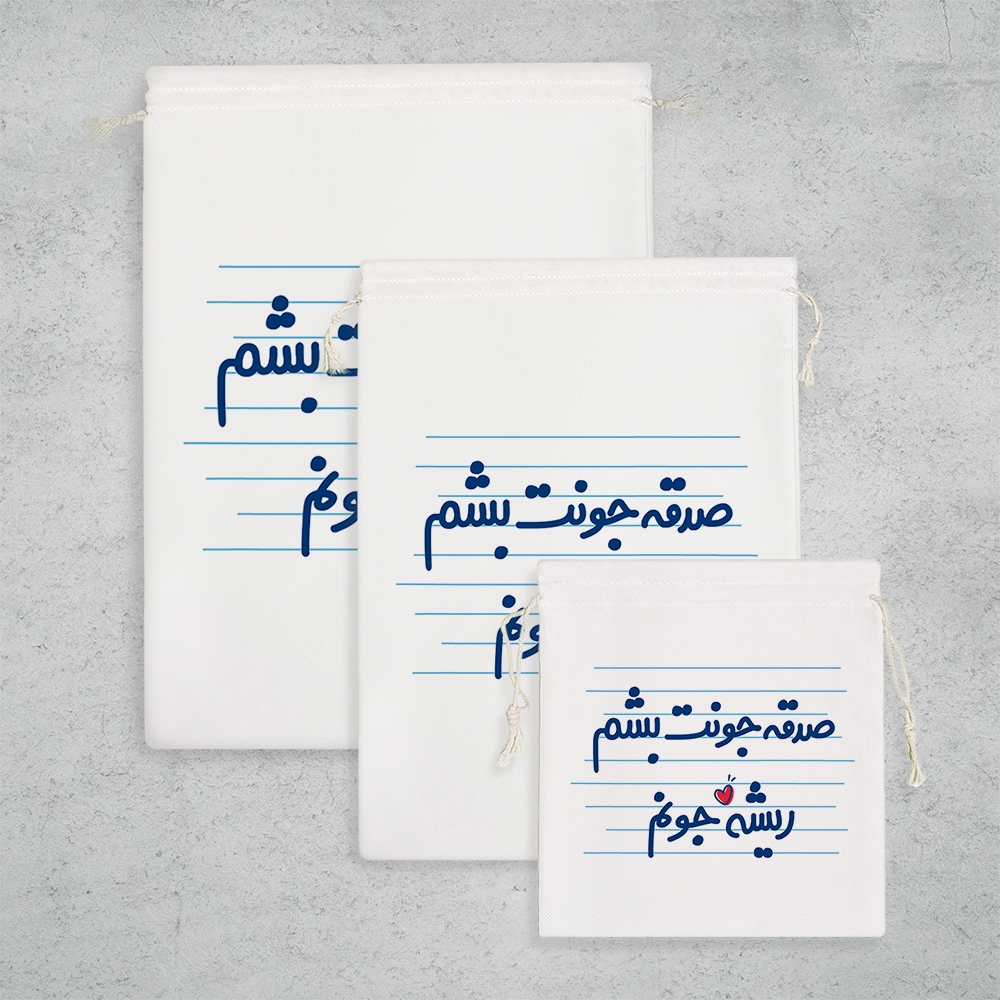 بشم
صدقه جونت بشم
صدقه جونت بشم
ریشه جونم